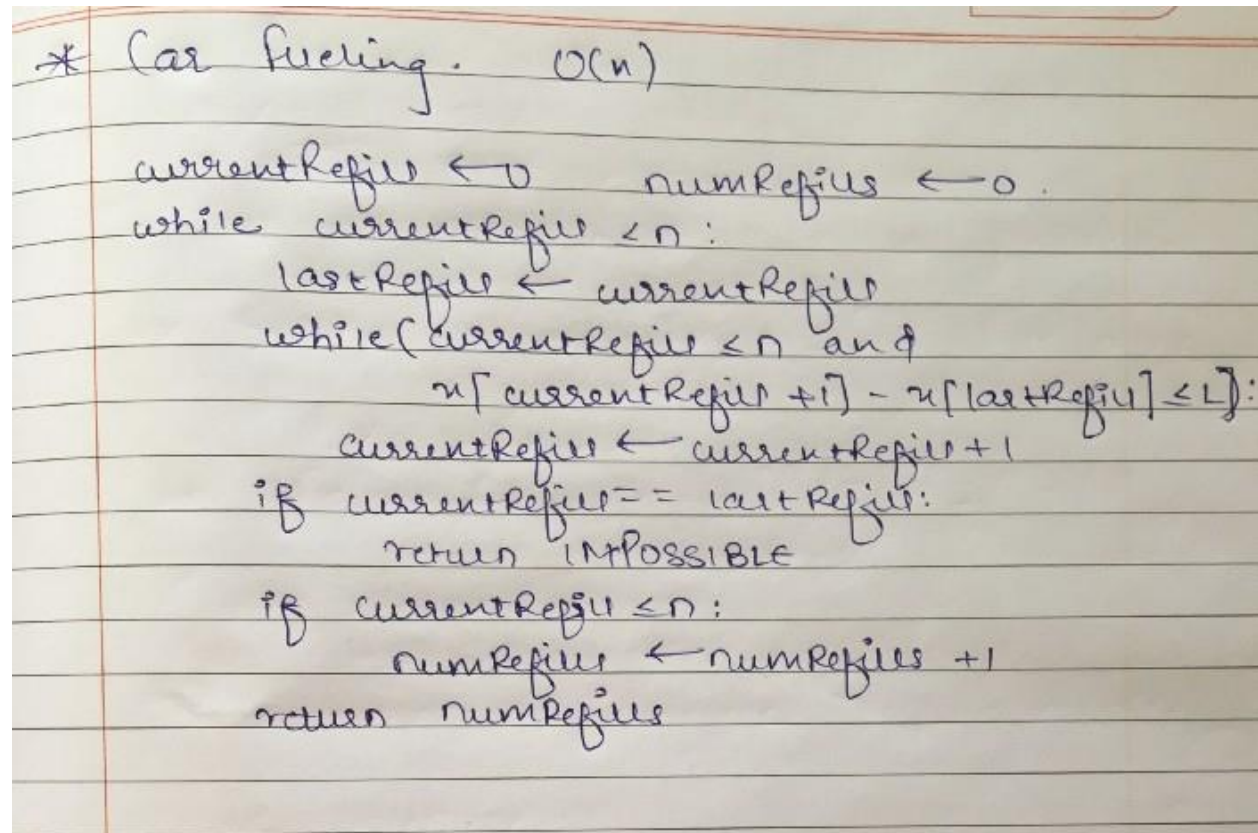 * Car fueling. O(n)
currentRefill ← 0 numRefills ← 0.
while currentRefill < n:
lastRefill ← currentRefill
while (currentRefill ≤ n and
x[currentRefill +1] - x[lastRefill] ≤ L]:
currentRefill ← currentRefill + 1
if currentRefill == lastRefill:
return IMPOSSIBLE
if currentRefill ≤ n:
numRefills ← numRefills +1
return numRefills